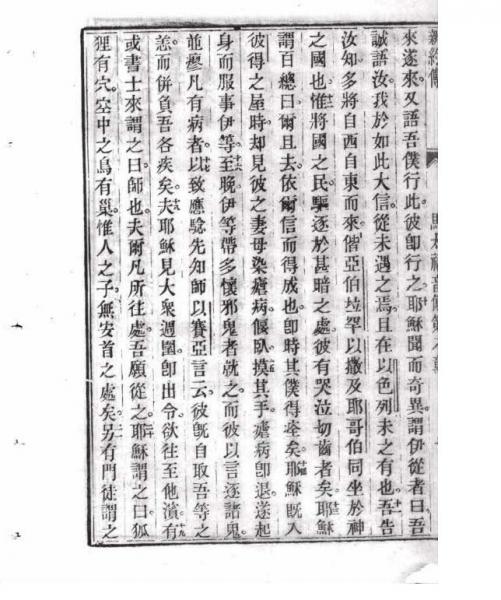 來遂來又語吾僕行此彼即行之耶穌聞而奇異謂伊從者曰吾
誠語汝我於如此大信從未遇之焉且在以色列未之有也十一吾告
汝知多將自西自東而來偕亞伯垃罕以撒及耶哥伯同坐於神
之國也十二惟將國之民驅逐於甚暗之處彼有哭泣切齒者矣耶穌
謂百總曰爾且去依爾信而得成也即時其僕得痊矣十四耶穌既入
彼得之屋時却見彼之妻母染瘧病偃臥十五摸其手瘧病即退遂起
身而服事伊等十六至晚伊等帶多懷邪鬼者就之而彼以言逐諸鬼
並廖凡有病者十七以致應騐先知師以賽亞言云彼既自取吾等之
恙而併負吾各疾矣十八夫耶穌見大衆週圍即出令欲往至他濱十九有
或書士來謂之曰師也夫爾凡所往處吾願從之二十耶穌謂之曰狐
狸有穴空中之鳥有巢惟人之子無安首之處矣另有門徒謂之